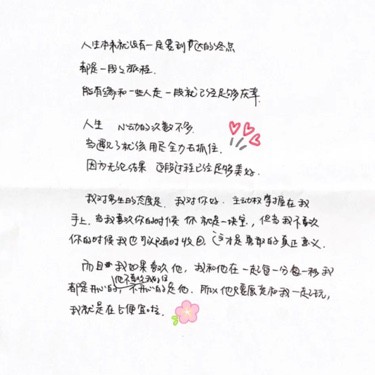 人生本来就没有一定要到达的终点
都是一段段旅程.
能有缘和一些人走一段就已经足够庆幸.
人生 心动的次数不多.
当遇见了就该用尽全力去抓住.
因为无论结果 这段过程已经足够美好.
我对男生的态度是. 我对你好. 主动权掌握在我
手上. 当我喜欢你的时候 你就是一块宝, 但当我不喜欢
你的时候我也可以随时收回 这才是真诚的真正意义.
而且 我如果喜欢他, 我和他在一起每一分每一秒我
都是开心的, 不开心的是他. 所以他只要愿意和我一起玩,
我就是在占便宜啦.